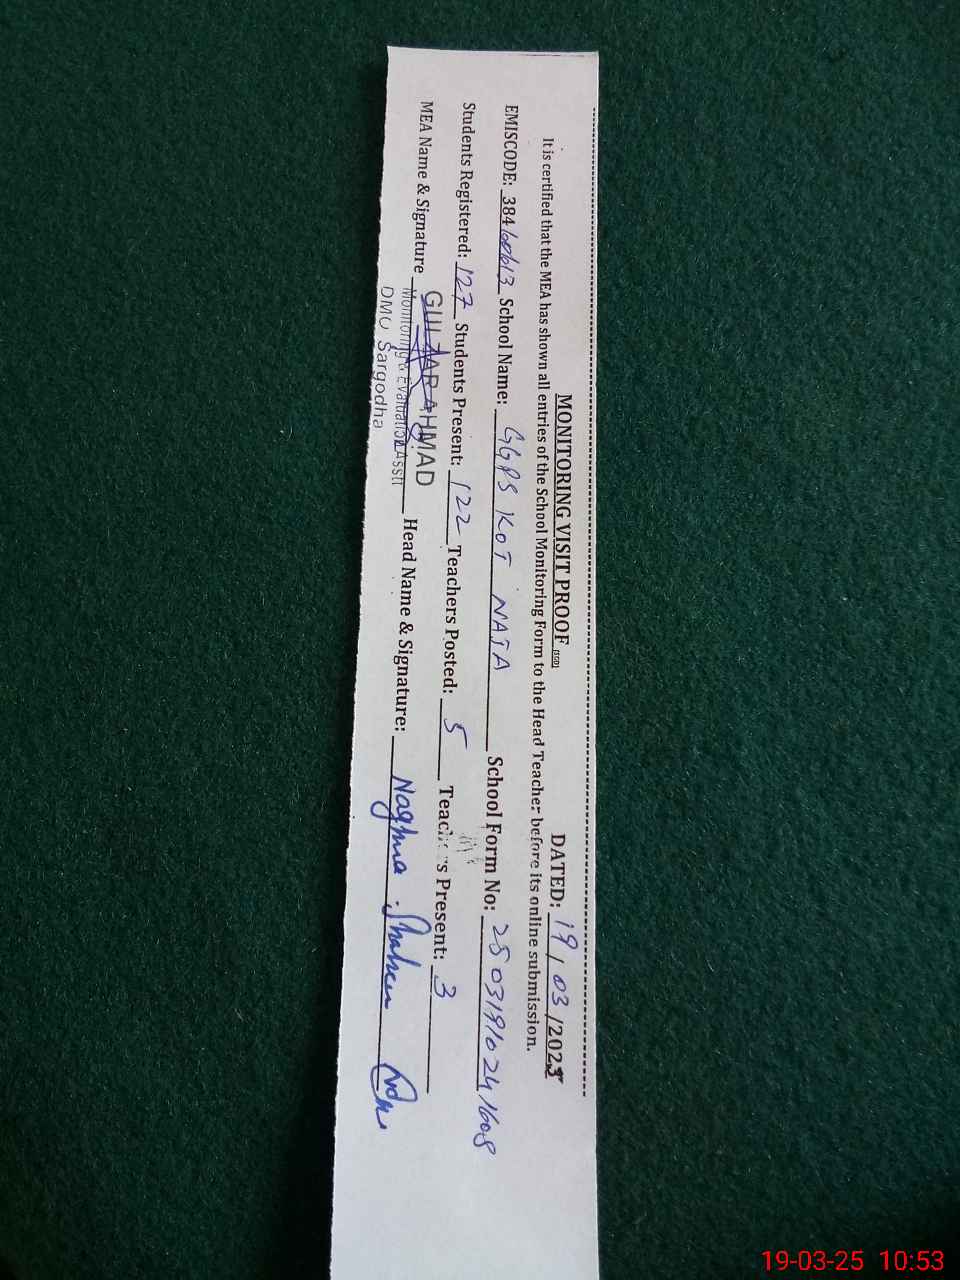 MONITORING VISIT PROOF (SGD) DATED: 19/03/2025
It is certified that the MEA has shown all entries of the School Monitoring Form to the Head Teacher before its online submission.
EMISCODE: 38460613 School Name: GGPS KOT NAJA School Form No: 250319102411608
Students Registered: 127 Students Present: 122 Teachers Posted: 5 Teachers Present: 3
MEA Name & Signature GULZAR AHMAD Head Name & Signature: Naghma Shaheen
Monitoring & Evaluation Asstt
DMO Sargodha
19-03-25 10:53